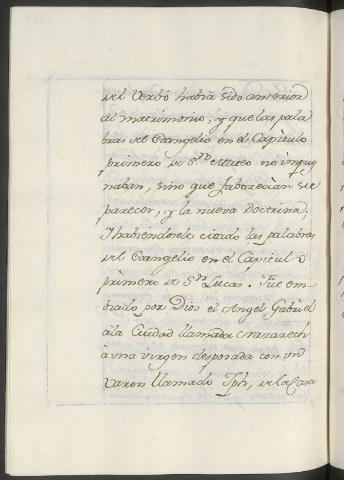 del Verbo havia sido anterior
al matrimonio, y que las pala
bras del Evangelio en el Capitulo
primero de Sn. Mateo no impug
naban, sino que faborecian su
parecer, y la nueva Doctrina,
Y habiendosele citado las palabras
del Evangelio en el Capitulo
primero de Sn. Lucas. Fue em
biado por Dios el Angel Gabriel
a la Ciudad llamada Nazareth
à una virgen desposada con un
varon llamado Jph, de la Casa